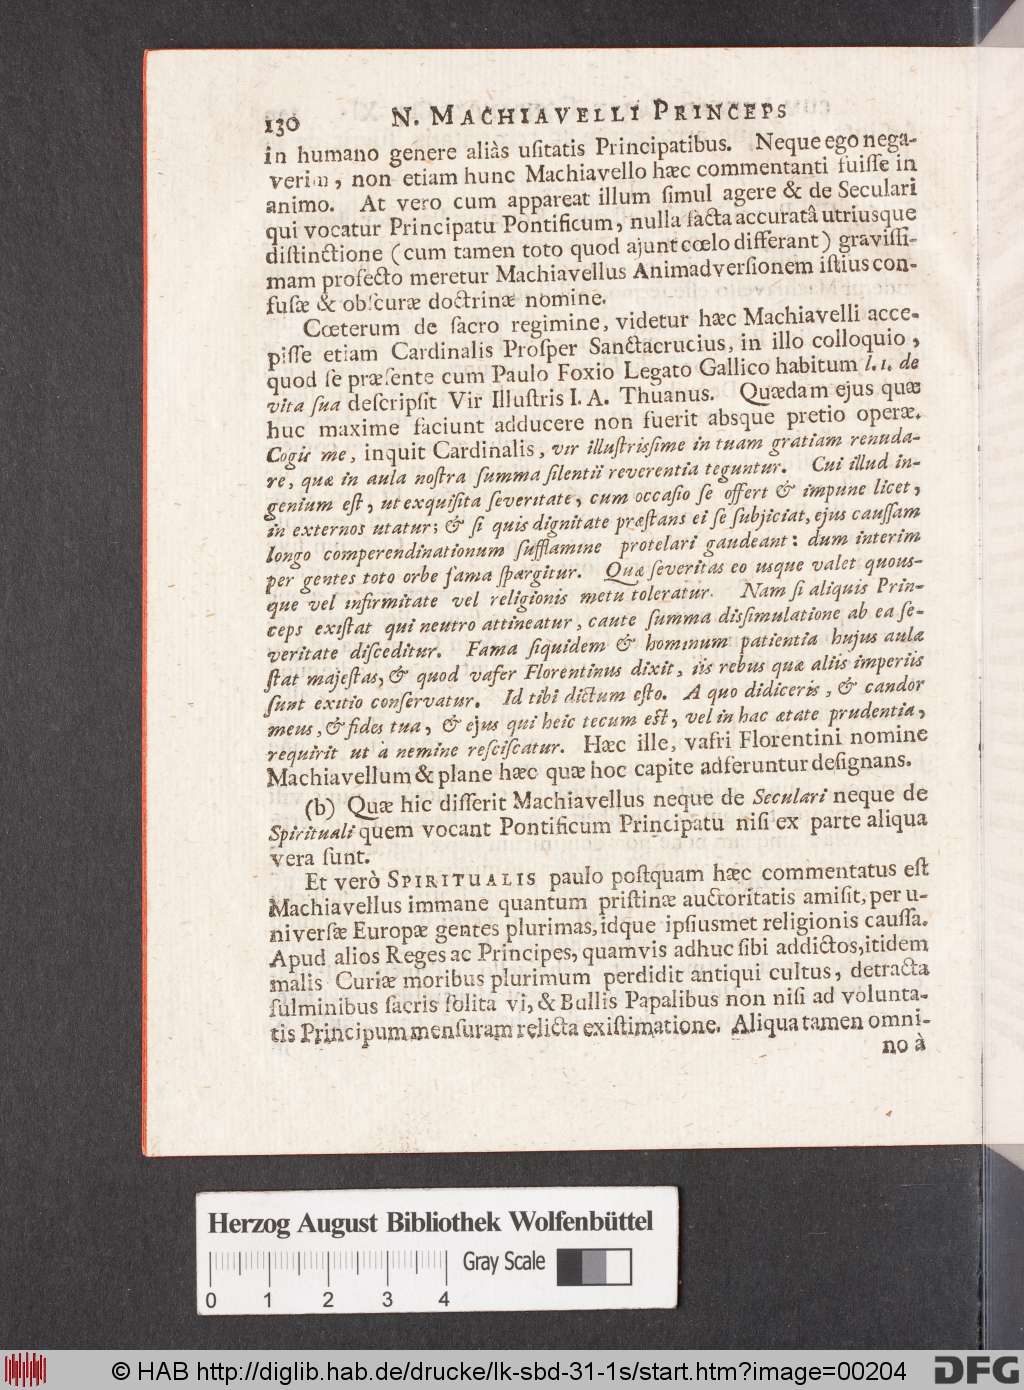 130 N. MACHIAVELLI PRINCEPS
in humano genere aliàs uſitatis Principatibus. Neque ego nega-
verim, non etiam hunc Machiavello hæc commentanti fuiſſe in
animo. At vero cum appareat illum ſimul agere & de Seculari
qui vocatur Principatu Pontificum, nulla facta accuratâ utriusque
diſtinctione (cum tamen toto quod ajunt cœlo differant) graviſſi-
mam profecto meretur Machiavellus Animadverſionem iſtius con-
fuſæ & obſcuræ doctrinæ nomine.
Cœterum de ſacro regimine, videtur hæc Machiavelli acce-
piſſe etiam Cardinalis Proſper Sanctacrucius, in illo colloquio,
quod ſe præſente cum Paulo Foxio Legato Gallico habitum l. 1. de
vita ſua deſcripſit Vir Illuſtris I. A. Thuanus. Quædam ejus quæ
huc maxime faciunt adducere non fuerit absque pretio operæ.
Cogis me, inquit Cardinalis, vir illuſtrisſime in tuam gratiam renuda-
re, quæ in aula noſtra ſumma ſilentii reverentia teguntur. Cui illud in-
genium eſt, ut exquiſita ſeveritate, cum occaſio ſe offert & impune licet,
in externos utatur; & ſi quis dignitate præſtans ei ſe ſubjiciat, ejus cauſſam
longo comperendinationum ſufflamine protelari gaudeant: dum interim
per gentes toto orbe fama ſpargitur. Quæ ſeveritas eo usque valet quous-
que vel infirmitate vel religionis metu toleratur. Nam ſi aliquis Prin-
ceps exiſtat qui neutro attineatur, caute ſumma disſimulatione ab ea ſe-
veritate diſceditur. Fama ſiquidem & hominum patientia hujus aulæ
ſtat majeſtas, & quod vafer Florentinus dixit, iis rebus quæ aliis imperiis
ſunt exitio conſervatur. Id tibi dictum eſto. A quo didiceris, & candor
meus, & fides tua, & ejus qui heic tecum eſt, vel in hac ætate prudentia,
requirit ut à nemine reſciſcatur. Hæc ille, vafri Florentini nomine
Machiavellum & plane hæc quæ hoc capite adferuntur deſignans.
(b) Quæ hic diſſerit Machiavellus neque de Seculari neque de
Spirituali quem vocant Pontificum Principatu niſi ex parte aliqua
vera ſunt.
Et verò SPIRITUALIS paulo poſtquam hæc commentatus eſt
Machiavellus immane quantum priſtinæ auctoritatis amiſit, per u-
niverſæ Europæ gentes plurimas, idque ipſiusmet religionis cauſſa.
Apud alios Reges ac Principes, quamvis adhuc ſibi addictos, itidem
malis Curiæ moribus plurimum perdidit antiqui cultus, detracta
fulminibus ſacris ſolita vi, & Bullis Papalibus non niſi ad volunta-
tis Principum menſuram relicta exiſtimatione. Aliqua tamen omni-
no à
Herzog August Bibliothek Wolfenbüttel
Gray Scale
0 1 2 3 4
© HAB http://diglib.hab.de/drucke/lk-sbd-31-1s/start.htm?image=00204 DFG